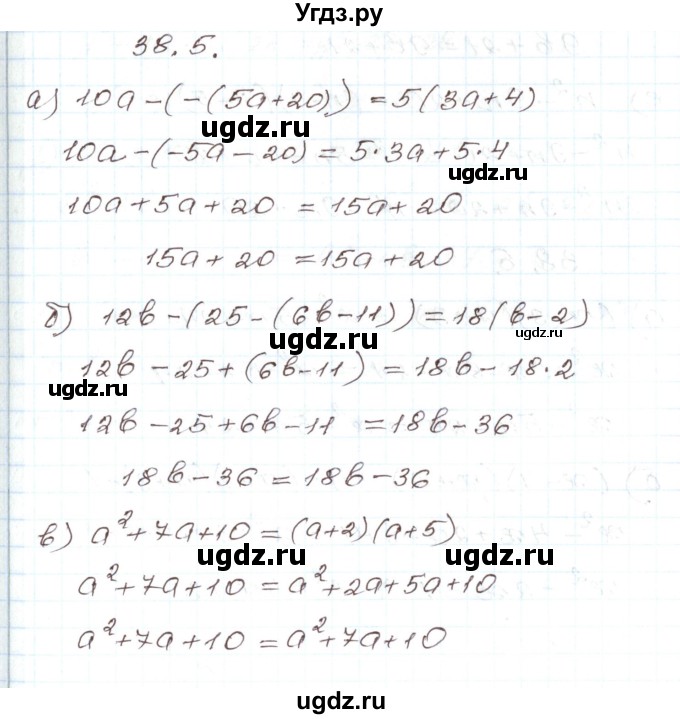 Угдз.ру
38.5.
а) 10a-(-(5a+20)) = 5(3a+4)
ugdz.ru
ugdz.ru
10a-(-5a-20) = 5·3a+5·4
10a+5a+20 = 15a+20
ugdz.ru
15a+20 = 15a+20
б) 12b-(25-(6b-11)) = 18(b-2)
ugdz.ru
ugdz.ru
12b-25+(6b-11) = 18b-18·2
ugdz.ru
12b-25+6b-11 = 18b-36
18b-36 = 18b-36
в) a²+7a+10 = (a+2)(a+5)
ugdz.ru
ugdz.ru
a²+7a+10 = a²+2a+5a+10
ugdz.ru
a²+7a+10 = a²+7a+10
ugdz.ru